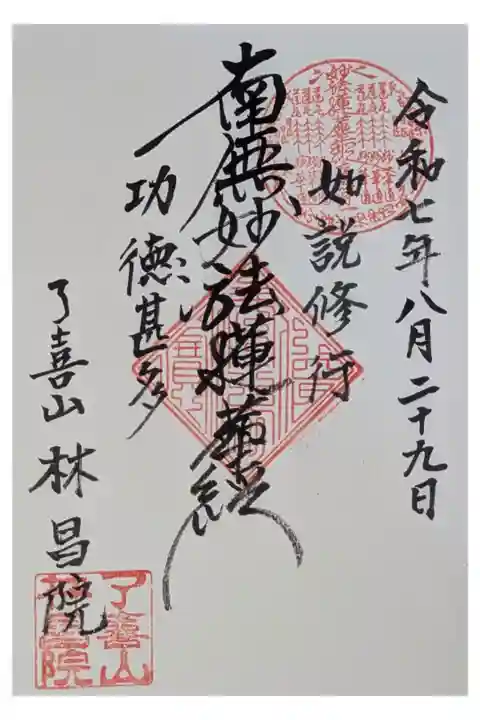 令和七年八月二十九日
如説修行
南無妙法蓮華経
功徳甚多
了喜山 林昌院
了喜山
林昌院